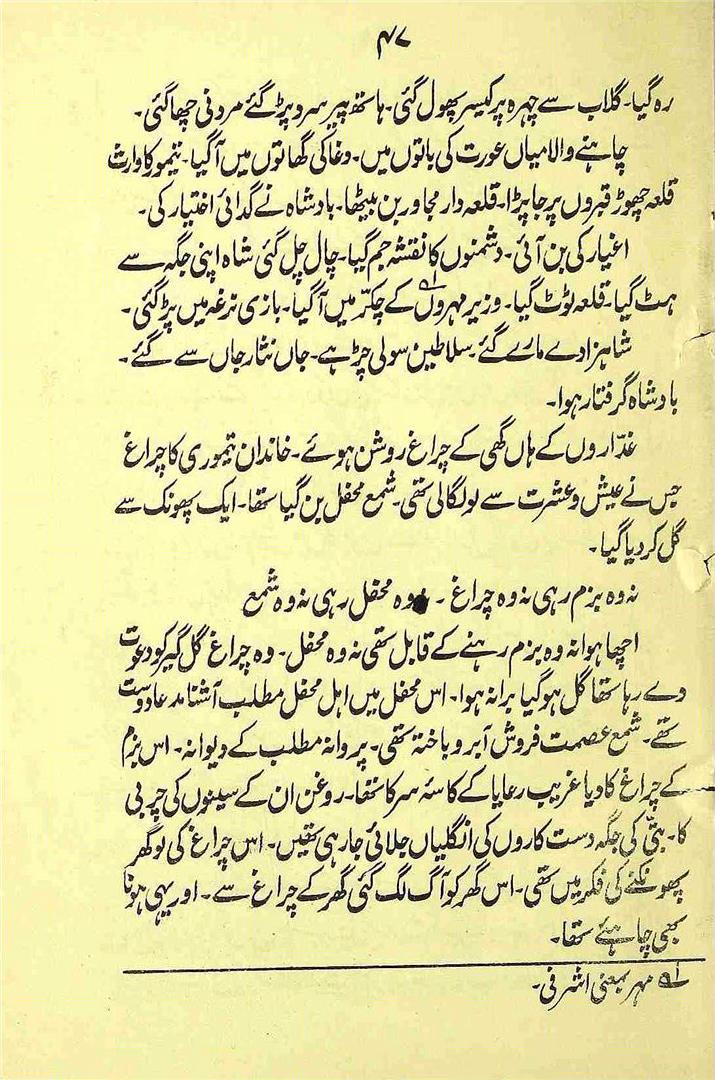 ۴۷
رہ گیا۔ گلاب سے چہرہ پر کیسر پھول گئی۔ ہاتھ پیر سرد پڑ گئے مردنی چھا گئی۔
چاہنے والا میاں عورت کی باتوں میں۔ دغا کی گھاتوں میں آ گیا۔ تیمور کا وارث
قلعہ چھوڑ قبروں پر جا پڑا۔ قلعہ دار مجاور بن بیٹھا۔ بادشاہ نے گدائی اختیار کی۔
اغیار کی بن آئی۔ دشمنوں کا نقشہ جم گیا۔ چال چل گئی شاہ اپنی جگہ سے
ہٹ گیا۔ قلعہ ٹوٹ گیا۔ وزیر مہروں ؎۱ کے چکّر میں آ گیا۔ بازی نرغہ میں پڑ گئی۔
شاہزادے مارے گئے۔ سلاطین سولی چڑھے۔ جاں نثار جاں سے گئے۔
بادشاہ گرفتار ہوا۔
غدّاروں کے ہاں گھی کے چراغ روشن ہوئے۔ خاندان تیموری کا چراغ
جس نے عیش و عشرت سے لو لگا لی تھی۔ شمع محفل بن گیا تھا۔ ایک پھونک سے
گل کر دیا گیا۔
نہ وہ بزم رہی نہ وہ چراغ۔ وہ محفل رہی نہ وہ شمع
اچھا ہوا نہ وہ بزم رہنے کے قابل تھی نہ وہ محفل۔ وہ چراغ گل گیر کو دعوت
دے رہا تھا گل ہو گیا برا نہ ہوا۔ اس محفل میں اہل محفل مطلب آشنا مدعا دوست
تھے۔ شمع عصمت فروش آبرو باختہ تھی۔ پروانہ مطلب کے دیوانہ۔ اس بزم
کے چراغ کا دیا غریب رعایا کے کاسۂ سر کا تھا۔ روغن ان کے سینوں کی چربی
کا۔ بتّی کی جگہ دست کاروں کی انگلیاں جلائی جا رہی تھیں۔ اس چراغ کی لو گھر
پھونکنے کی فکر میں تھی۔ اس گھر کو آگ لگ گئی گھر کے چراغ سے۔ اور یہی ہونا
بھی چاہئے تھا۔
؎۱ مہر بمعنی اشرفی۔